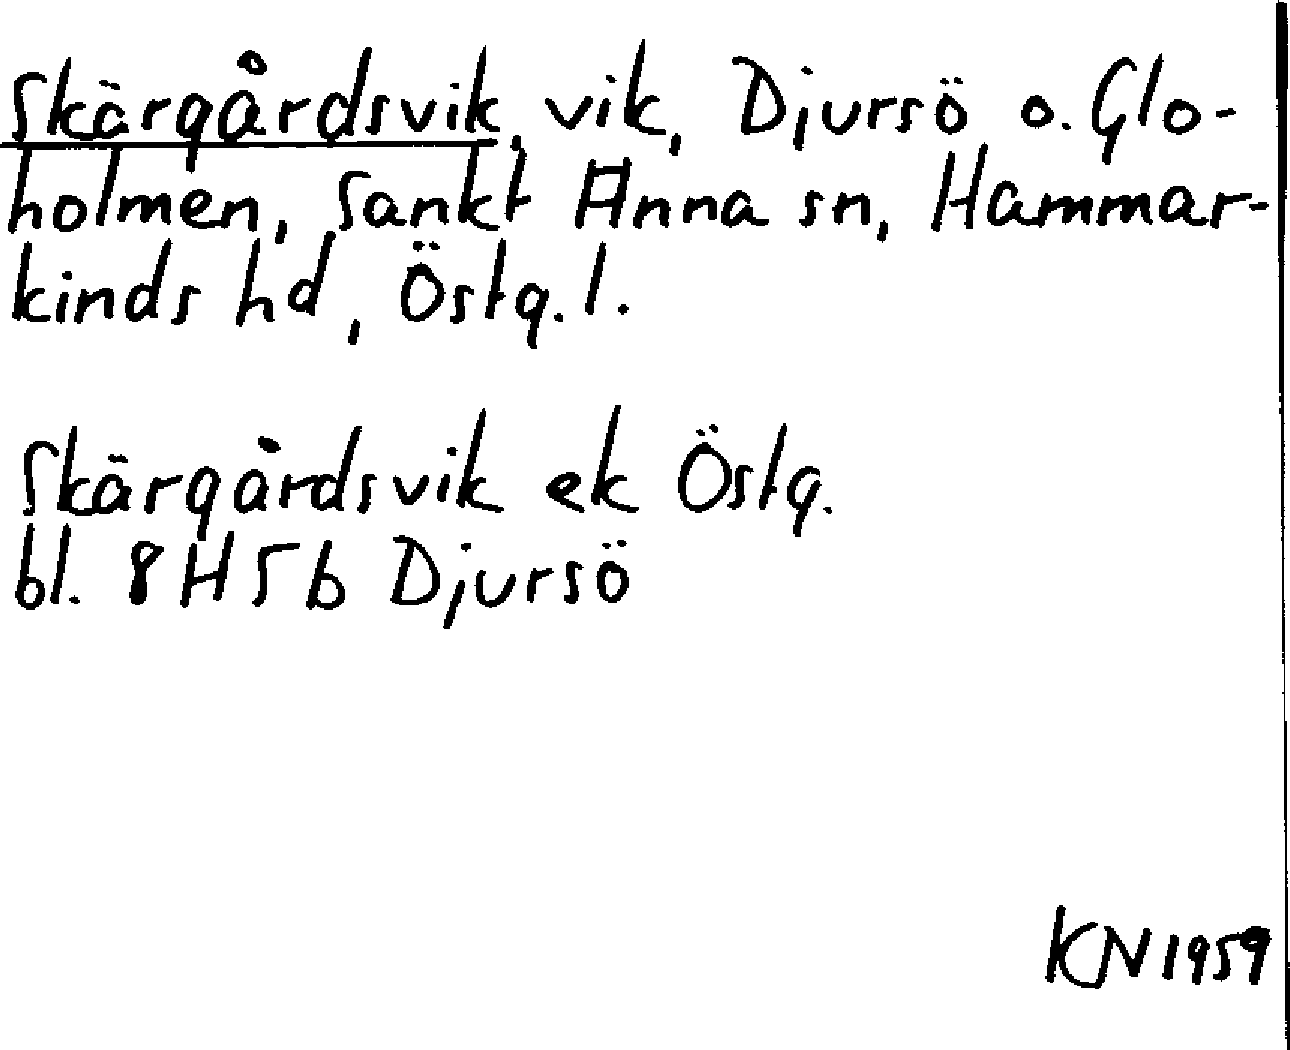 Skärgårdsvik, vik, Djursö o. Glo-
holmen, Sankt Anna sn, Hammar-
kinds hd, Östg. l.
Skärgårdsvik ek Östg.
bl. 8H5b Djursö
KN 1959